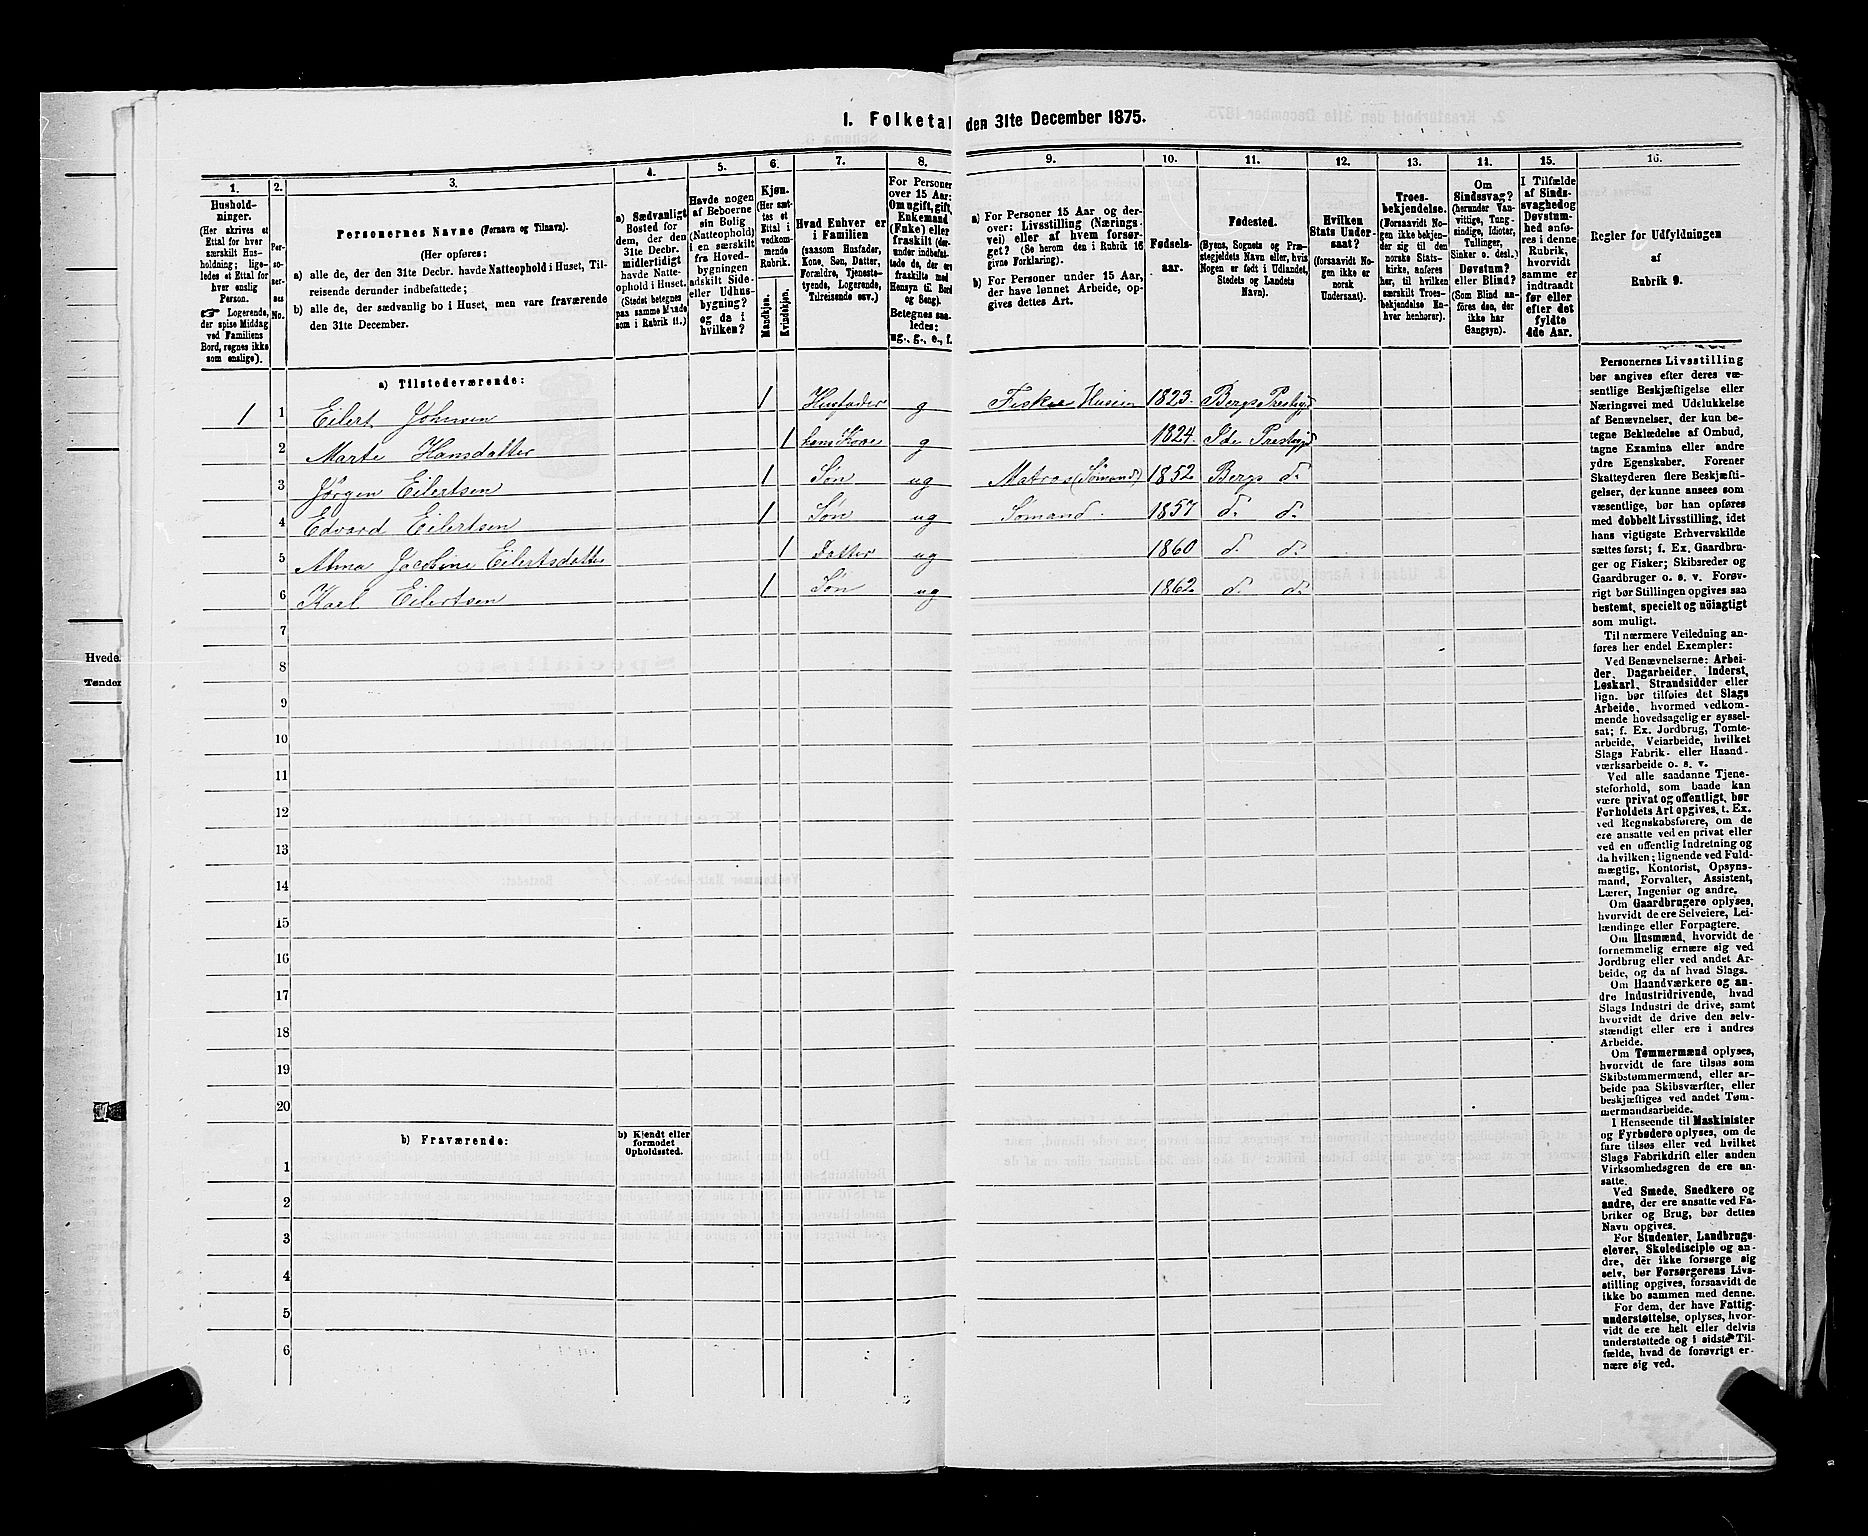 I. Folketal den 31te December 1875.
1. 2. 3. 4. 5. 6. 7. 8. 9. 10. 11. 12. 13. 14. 15. 16.
Hushold-
ninger.
(Her skrives et
Ettal for hver
særskilt Hus-
holdning; lige-
ledes et Ettal for
hver enslig
Person.
☞ Logerende,
der spise Middag
ved Familiens
Bord, regnes ikke
som enslige).
Per-
so-
ner-
nes
No.
Personernes Navne (Fornavn og Tilnavn).
(Her opføres:
a) alle de, der den 31te Decbr. havde Natteophold i Huset, Til-
reisende derunder indbefattede;
b) alle de, der sædvanlig bo i Huset, men vare fraværende
den 31te December.
a) Sædvanligt
Bosted for
dem, der den
31te Decbr.
midlertidigt
havde Natte-
ophold i Huset.
(Stedet betegnes
paa samme Maade
som i Rubrik 11.)
Havde nogen
af Beboerne
sin Bolig
(Natteophold)
i en særskilt
fra Hoved-
bygningen
adskilt Side-
eller Udhus-
bygning?
og da i
hvilken?
Kjøn.
(Her sæt-
tes et
Ettal i
vedkom-
mende
Rubrik.
Mandkjøn.
Kvindekjøn.
Hvad Enhver er
i Familien
(saasom Husfader,
Kone, Søn, Datter,
Forældre, Tjeneste-
tyende, Logerende,
Tilreisende osv.)
For Personer
over 15 Aar:
Om ugift, gift,
Enkemand
(Enke) eller
fraskilt (der-
under indbefat-
tede de, der ere
fraskilte med
Hensyn til Bord
og Seng).
Betegnes saa-
ledes:
ug., g., e., f.
a) For Personer 15 Aar og der-
over: Livsstilling (Nærings-
vei) eller af hvem forsør-
get? (Se herom den i Rubrik 16
givne Forklaring).
b) For Personer under 15 Aar,
der have lønnet Arbeide, op-
gives dettes Art.
Fødsels-
aar.
Fødested.
(Byens, Sognets og Præ-
stegjeldets Navn eller, hvis
Nogen er født i Udlandet,
Stedets og Landets
Navn).
Hvilken
Stats Under-
saat?
(forsaavidt No-
gen ikke er
norsk
Undersaat).
Troes-
bekjendelse.
(Forsaavidt No-
gen ikke bekjen-
der sig til den
norske Stats-
kirke, anføres
her, til hvilken
særskilt Troes-
bekjendelse En-
hver henhører).
Om
Sindssvag?
(herunder Van-
vittige, Tung-
sindige, Idioter,
Tullinger,
Sinker o. desl.)
Døvstum?
eller Blind?
(Som Blind an-
føres den, der
ikke har
Gangsyn).
I Tilfælde
af Sinds-
svaghed og
Døvstum-
hed anfø-
res i denne
Rubrik,
hvorvidt
samme er
indtraadt
før eller
efter det
fyldte
4de Aar.
Regler for Udfyldningen
af
Rubrik 9.
a) Tilstedeværende:
1 1 Eilert Johnsen 1 Husfader g Fisker Huseier 1823. Bergs Prestgjd
2 Marte Hansdatter 1 hans Kone g 1824. Ide Prestgjd
3 Jørgen Eilertsen 1 Søn ug Matros (Sømand) 1852. Bergs d.
4 Edvard Eilertsen 1 Søn ug Sømand. 1857 d. d.
5 Alma Jocobine Eilertsdatter 1 Datter ug 1860 d. d.
6 Karl Eilertsen 1 Søn ug 1862 d. d.
7
8
9
10
11
12
13
14
15
16
17
18
19
20
b) Fraværende:
b) Kjendt eller
formodet
Opholdssted.
1
2
3
4
5
6
Personernes Livsstilling
bør angives efter deres væ-
sentlige Beskjæftigelse eller
Næringsvei med Udelukkelse
af Benævnelser, der kun be-
tegne Beklædelse af Ombud,
tagne Examina eller andre
ydre Egenskaber. Forener
Skatteyderen flere Beskjæfti-
gelser, der kunne ansees som
væsentlige, bør han opføres
med dobbelt Livsstilling, idet
hans vigtigste Erhvervskilde
sættes først; f. Ex. Gaardbru-
ger og Fisker; Skibsreder og
Gaardbruger o. s. v. Forøv-
rigt bør Stillingen opgives saa
bestemt, specielt og nöiagtigt
som muligt.
Til nærmere Veiledning an-
føres her endel Exempler:
Ved Benævnelserne: Arbei-
der, Dagarbeider, Inderst,
Løskarl, Strandsidder eller
lign. bør tilføies det Slags
Arbeide, hvormed vedkom-
mende hovedsagelig er syssel-
sat; f. Ex. Jordbrug, Tomte-
arbeide, Veiarbeide, hvilket
Slags Fabrik- eller Haand-
værksarbeide o. s. v.
Ved alle saadanne Tjene-
steforhold, som baade kan
være privat og offentligt, bør
Forholdets Art opgives, t. Ex.
ved Regnskabsførere, om de
ere ansatte ved en privat eller
ved en offentlig Indretning og
da hvilken; lignende ved Fuld-
mægtig, Kontorist, Opsyns-
mand, Forvalter, Assistent,
Lærer, Ingeniør og andre.
Om Gaardbrugere oplyses,
hvorvidt de ere Selveiere, Lei-
lændinge eller Forpagtere.
Om Husmænd, hvorvidt de
fornemmelig ernære sig ved
Jordbrug eller ved andet Ar-
beide, og da af hvad Slags.
Om Haandværkere og an-
dre Industridrivende, hvad
Slags Industri de drive, samt
hvorvidt de drive den selv-
stændigt eller ere i andres
Arbeide.
Om Tømmermænd oplyses,
hvorvidt de fare tilsøs som
Skibstømmermænd, eller ar-
beide paa Skibsværfter, eller
beskjæftiges ved andet Tøm-
mermandsarbeide.
I Henseende til Maskinister
og Fyrbødere oplyses, om de
fare tilsøs eller ved hvilket
Slags Fabrikdrift eller anden
Virksomhedsgren de ere an-
satte.
Ved Smede, Snedkere og
andre, der ere ansatte ved Fa-
briker og Brug, bør dettes
Navn opgives.
For Studenter, Landbrugs-
elever, Skoledisciple og an-
dre, der ikke forsørge sig
selv, bør Forsørgerens Livs-
stilling opgives, forsaavidt de
ikke bo sammen med denne.
For dem, der have Fattig-
understøttelse, oplyses, hvor-
vidt de ere helt eller delvis
understøttede og i sidste Til-
fælde, hvad de forøvrigt er-
nære sig ved.
Hvede.
Tønder